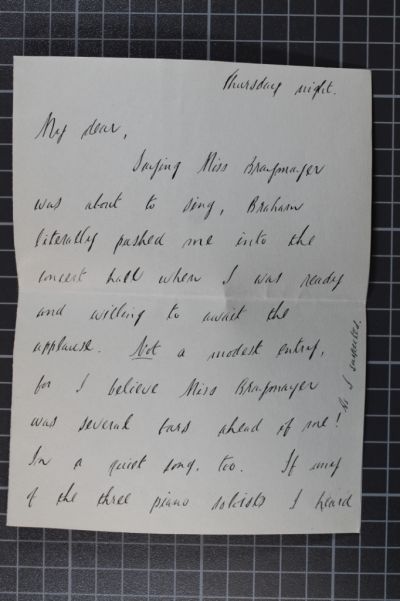 Thursday night.
My dear,
Saying Miss Braymayer
was about to sing, Braham
literally pushed me into the
concert hall when I was ready
and willing to await the
applause. Not a modest entry,
for I believe Miss Braymayer
was several bars ahead of me!
In a quiet song, too. If any
of the three piano soloists I heard
I suspected.